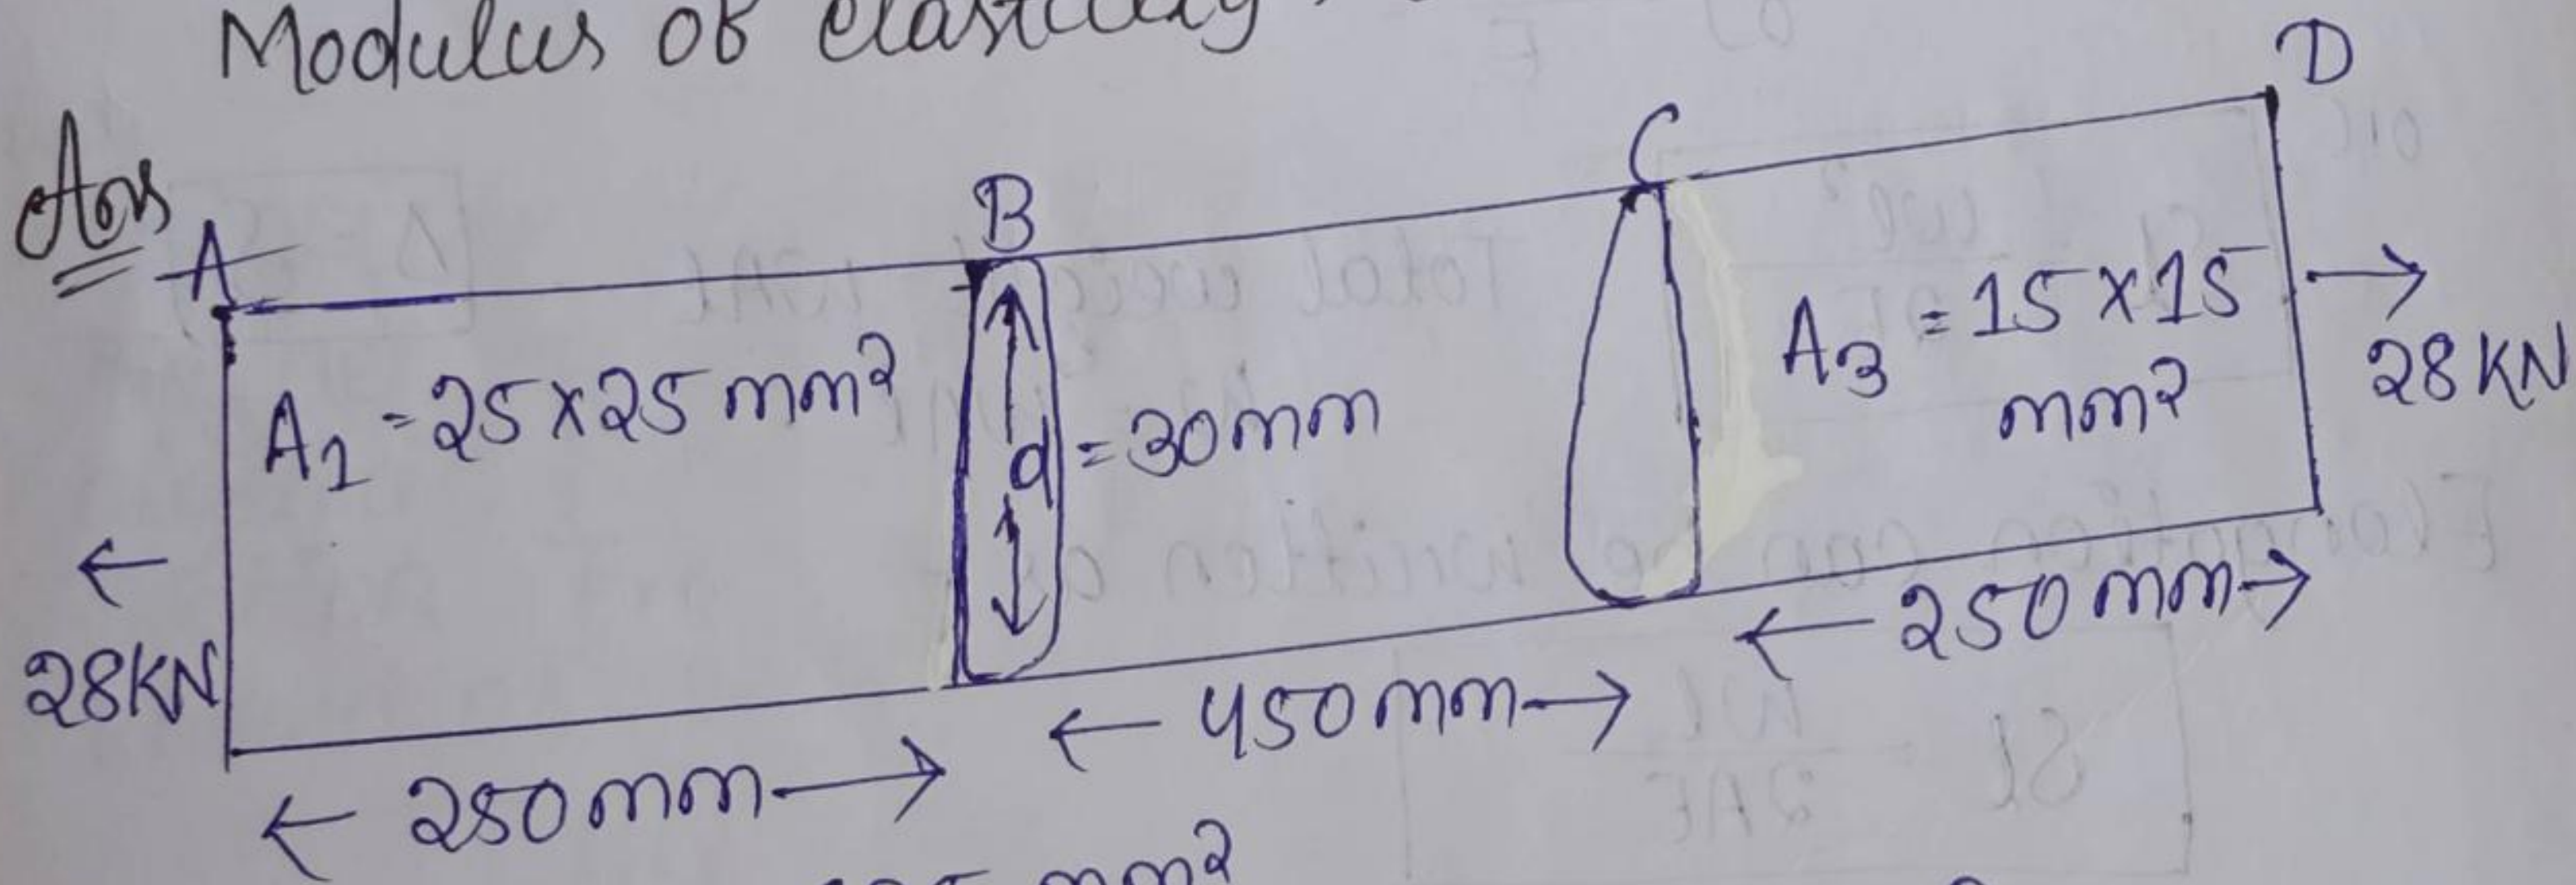 Modulus of elasticity
Ans
A
B
C
D
A1 = 25×25 mm²
d = 30mm
A3 = 15×15
mm²
→
28KN
←
28KN
← 250mm →
← 450mm →
← 250mm →
mm²